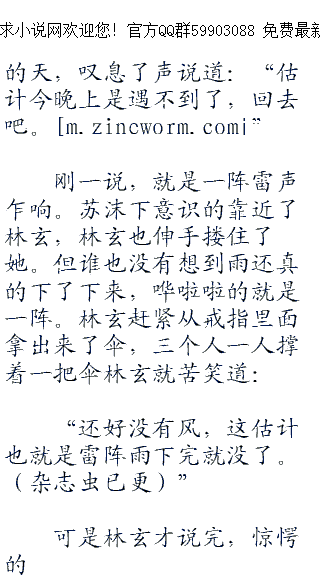 求小说网欢迎您！官方QQ群59903088 免费最新
的天，叹息了声说道：“估
计今晚上是遇不到了，回去
吧。[m.zincworm.comi”
刚一说，就是一阵雷声
乍响。苏沫下意识的靠近了
林玄，林玄也伸手搂住了
她。但谁也没有想到雨还真
的下了下来，哗啦啦的就是
一阵。林玄赶紧从戒指里面
拿出来了伞，三个人一人撑
着一把伞林玄就苦笑道：
“还好没有风，这估计
也就是雷阵雨下完就没了。
（杂志虫已更）”
可是林玄才说完，惊愕
的